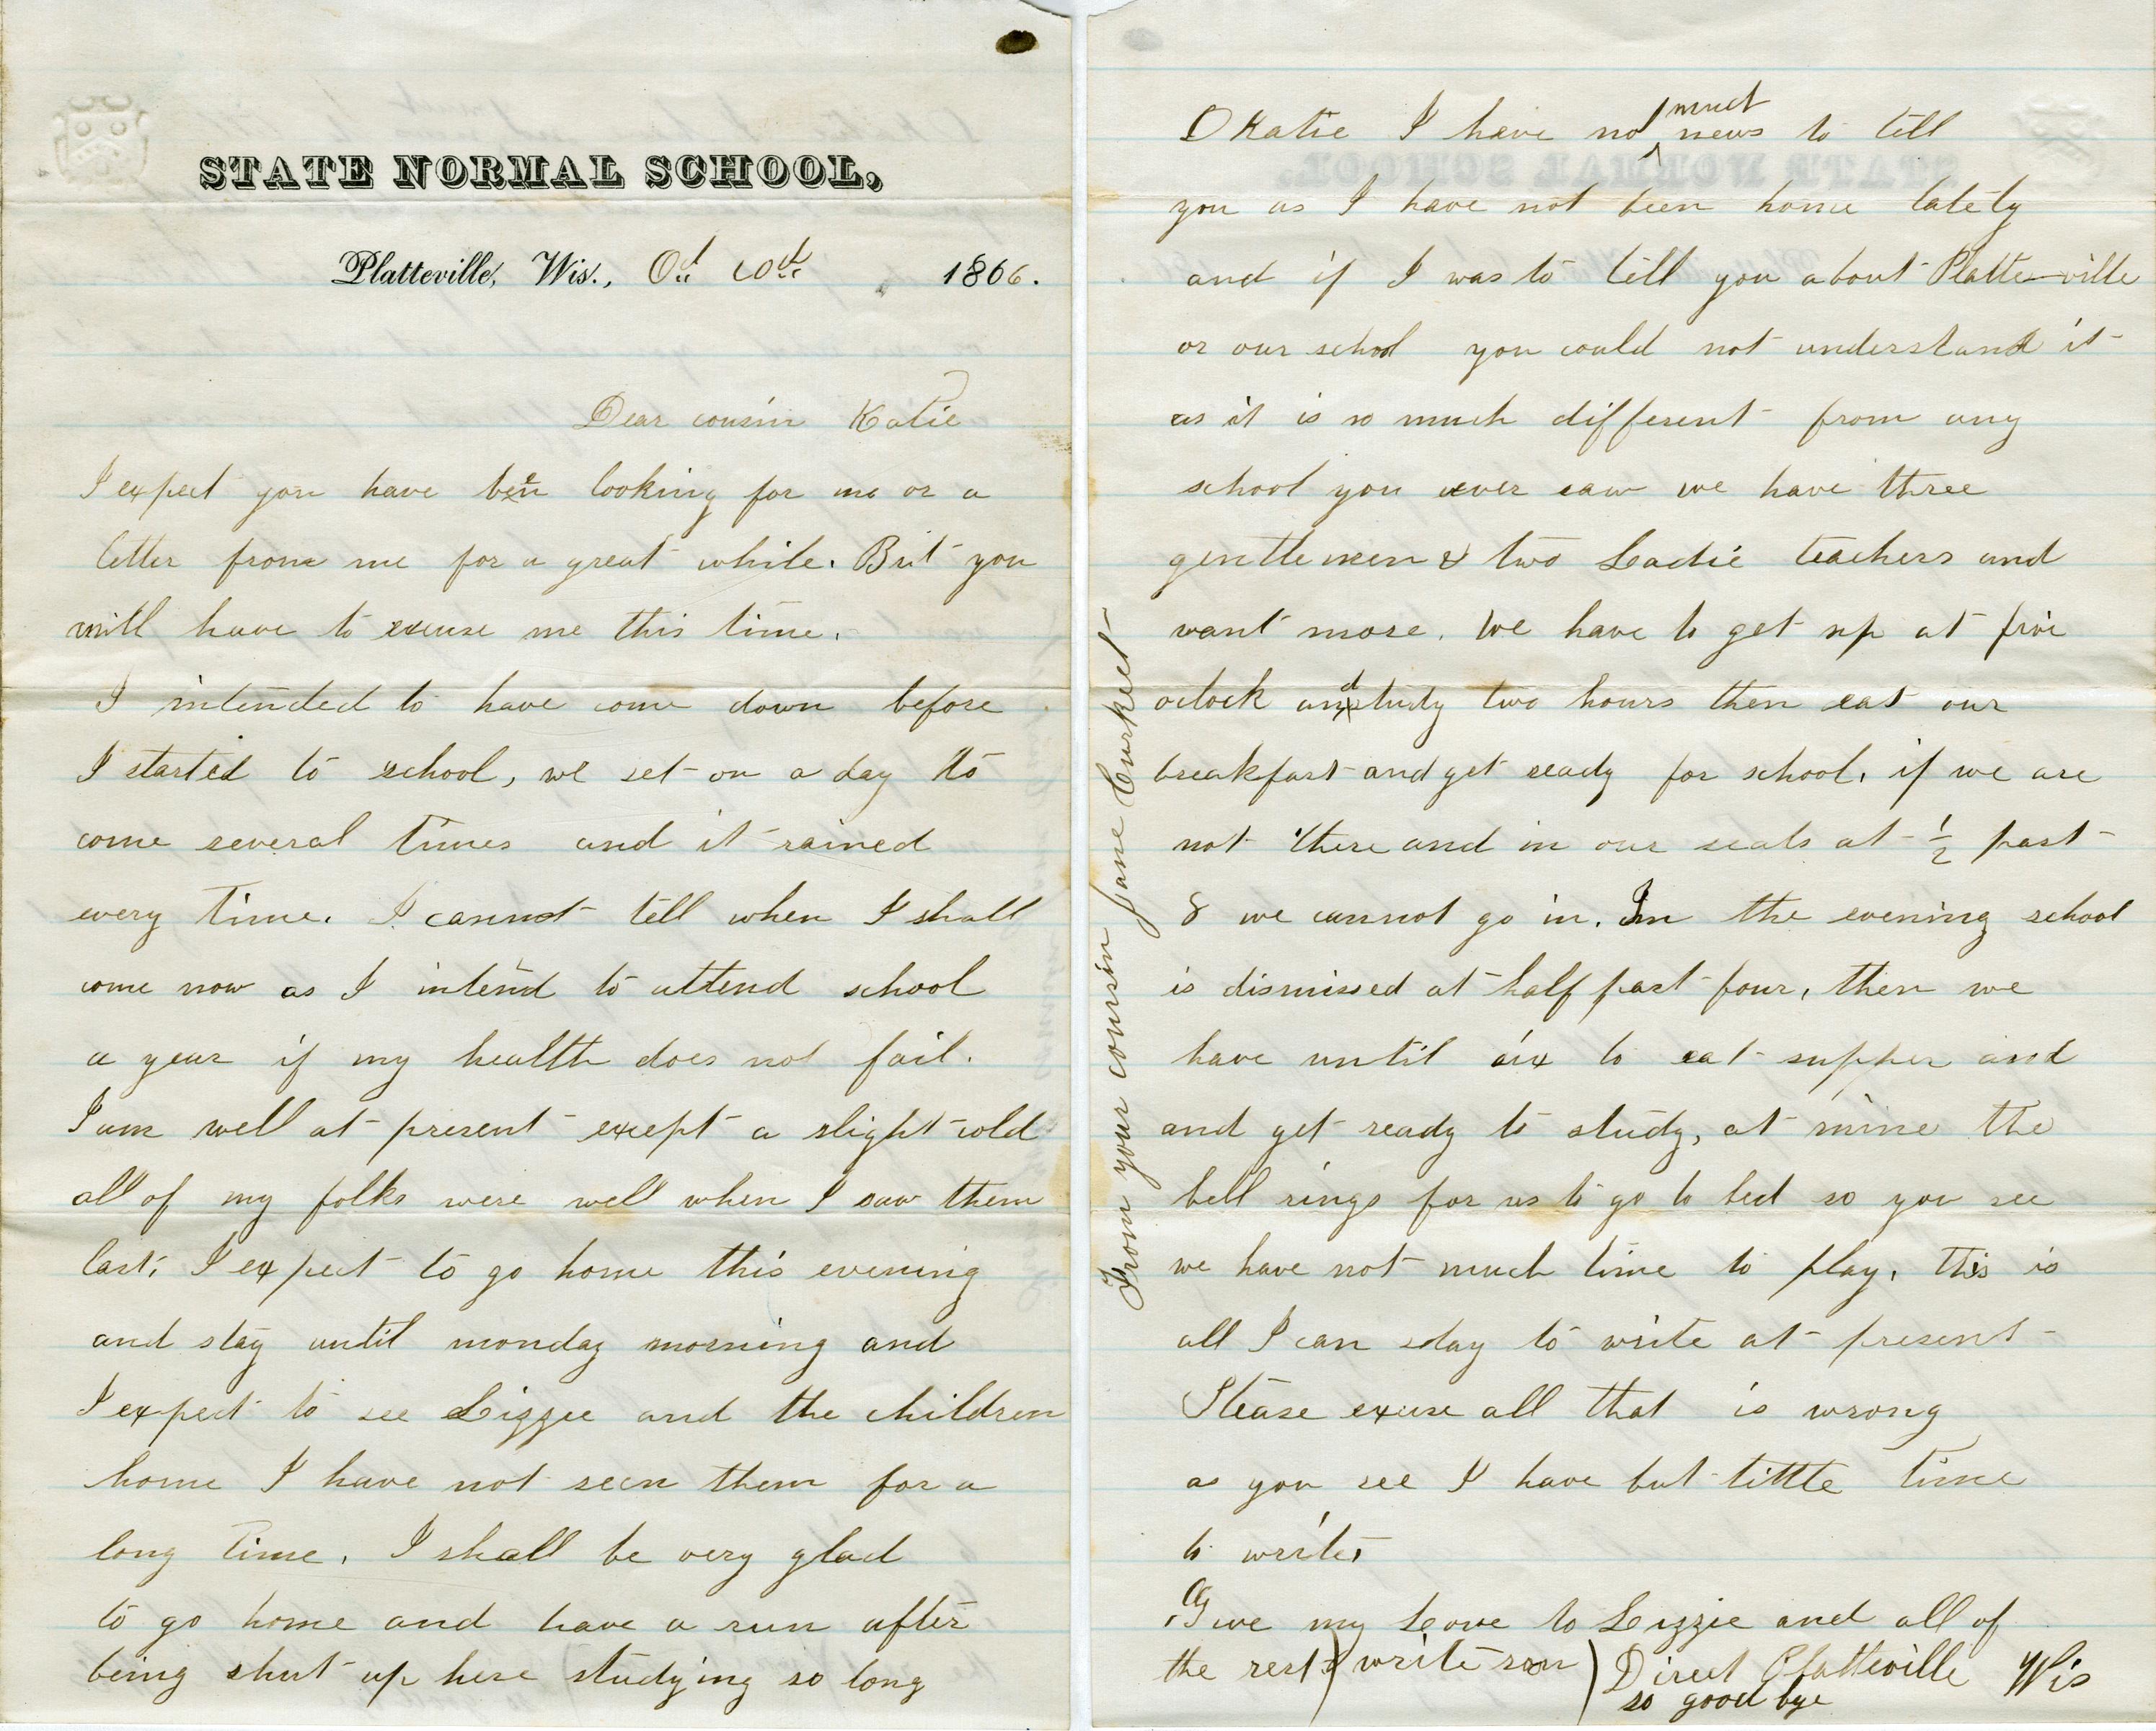 STATE NORMAL SCHOOL,
Platteville, Wis., Oct 1866.
Dear cousin Katie
I expect you have been looking for me or a
letter from me for a great while. But you
will have to excuse me this time.
I intended to have come down before
I started to school, we set on a day to
come several times and it rained
every time. I cannot tell when I shall
come now as I intend to attend school
a year if my health does not fail.
I am well at present except a slight cold
all of my folks were well when I saw them
last, I expect to go home this evening
and stay until monday morning and
I expect to see Lizzie and the children
home I have not seen them for a
long time. I shall be very glad
to go home and have a run after
being shut up here studying so long
O Katie I have not much news to tell
you as I have not been home lately
and if I was to tell you about Platteville
or our school you could not understand it
as it is so much different from any
school you ever saw we have three
gentlemen & two Ladie teachers and
want more. We have to get up at five
oclock and study two hours then eat our
breakfast and get ready for school. if we are
not there and in our seats at 1/2 past
8 we cannot go in. In the evening school
is dismissed at half past four, then we
have until six to eat supper and
and get ready to study, at nine the
bell rings for us to go to bed so you see
we have not much time to play. this is
all I can stay to write at present
Please excuse all that is wrong
as you see I have but little time
to write.
Give my Love to Lizzie and all of
the rest) write soon) Direct Platteville Wis
so good bye
From your cousin Jane Curkeet